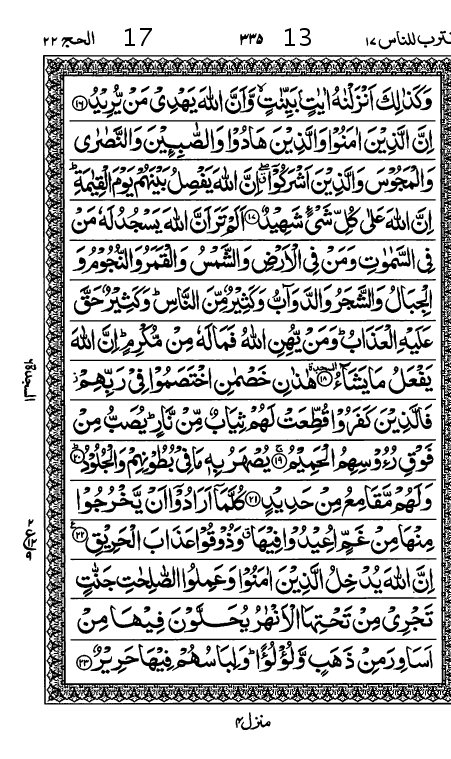 قترب للناس ١٧ 13 ٣٣٥ 17 الحج ٢٢
وَكَذٰلِكَ اَنْزَلْنٰهُ اٰيٰتٍۭ بَيِّنٰتٍ ۙ وَّاَنَّ اللّٰهَ يَهْدِىْ مَنْ يُّرِيْدُ ﴿۱۶﴾
اِنَّ الَّذِيْنَ اٰمَنُوْا وَالَّذِيْنَ هَادُوْا وَالصّٰبِـِٕيْنَ وَالنَّصٰرٰى
وَالْمَجُوْسَ وَالَّذِيْنَ اَشْرَكُوْۤا ۖ اِنَّ اللّٰهَ يَفْصِلُ بَيْنَهُمْ يَوْمَ الْقِيٰمَةِ ؕ
اِنَّ اللّٰهَ عَلٰى كُلِّ شَىْءٍ شَهِيْدٌ ﴿۱۷﴾ اَلَمْ تَرَ اَنَّ اللّٰهَ يَسْجُدُ لَهٗ مَنْ
فِى السَّمٰوٰتِ وَمَنْ فِى الْاَرْضِ وَالشَّمْسُ وَالْقَمَرُ وَالنُّجُوْمُ وَ
الْجِبَالُ وَالشَّجَرُ وَالدَّوَآبُّ وَكَثِيْرٌ مِّنَ النَّاسِ ؕ وَكَثِيْرٌ حَقَّ
عَلَيْهِ الْعَذَابُ ؕ وَمَنْ يُّهِنِ اللّٰهُ فَمَا لَهٗ مِنْ مُّكْرِمٍ ؕ اِنَّ اللّٰهَ
يَفْعَلُ مَا يَشَآءُ ﴿۱۸﴾ هٰذٰنِ خَصْمٰنِ اخْتَصَمُوْا فِىْ رَبِّهِمْ ؗ
فَالَّذِيْنَ كَفَرُوْا قُطِّعَتْ لَهُمْ ثِيَابٌ مِّنْ نَّارٍ ؕ يُصَبُّ مِنْ
فَوْقِ رُءُوْسِهِمُ الْحَمِيْمُ ﴿۱۹﴾ يُصْهَرُ بِهٖ مَا فِىْ بُطُوْنِهِمْ وَالْجُلُوْدُ ﴿۲۰﴾
وَلَهُمْ مَّقَامِعُ مِنْ حَدِيْدٍ ﴿۲۱﴾ كُلَّمَاۤ اَرَادُوْۤا اَنْ يَّخْرُجُوْا
مِنْهَا مِنْ غَمٍّ اُعِيْدُوْا فِيْهَا ۗ وَذُوْقُوْا عَذَابَ الْحَرِيْقِ ﴿۲۲﴾
اِنَّ اللّٰهَ يُدْخِلُ الَّذِيْنَ اٰمَنُوْا وَعَمِلُوا الصّٰلِحٰتِ جَنّٰتٍ
تَجْرِىْ مِنْ تَحْتِهَا الْاَنْهٰرُ يُحَلَّوْنَ فِيْهَا مِنْ
اَسَاوِرَ مِنْ ذَهَبٍ وَّلُؤْلُؤًا ؕ وَلِبَاسُهُمْ فِيْهَا حَرِيْرٌ ﴿۲۳﴾
السجدة ٦
منزل ۴